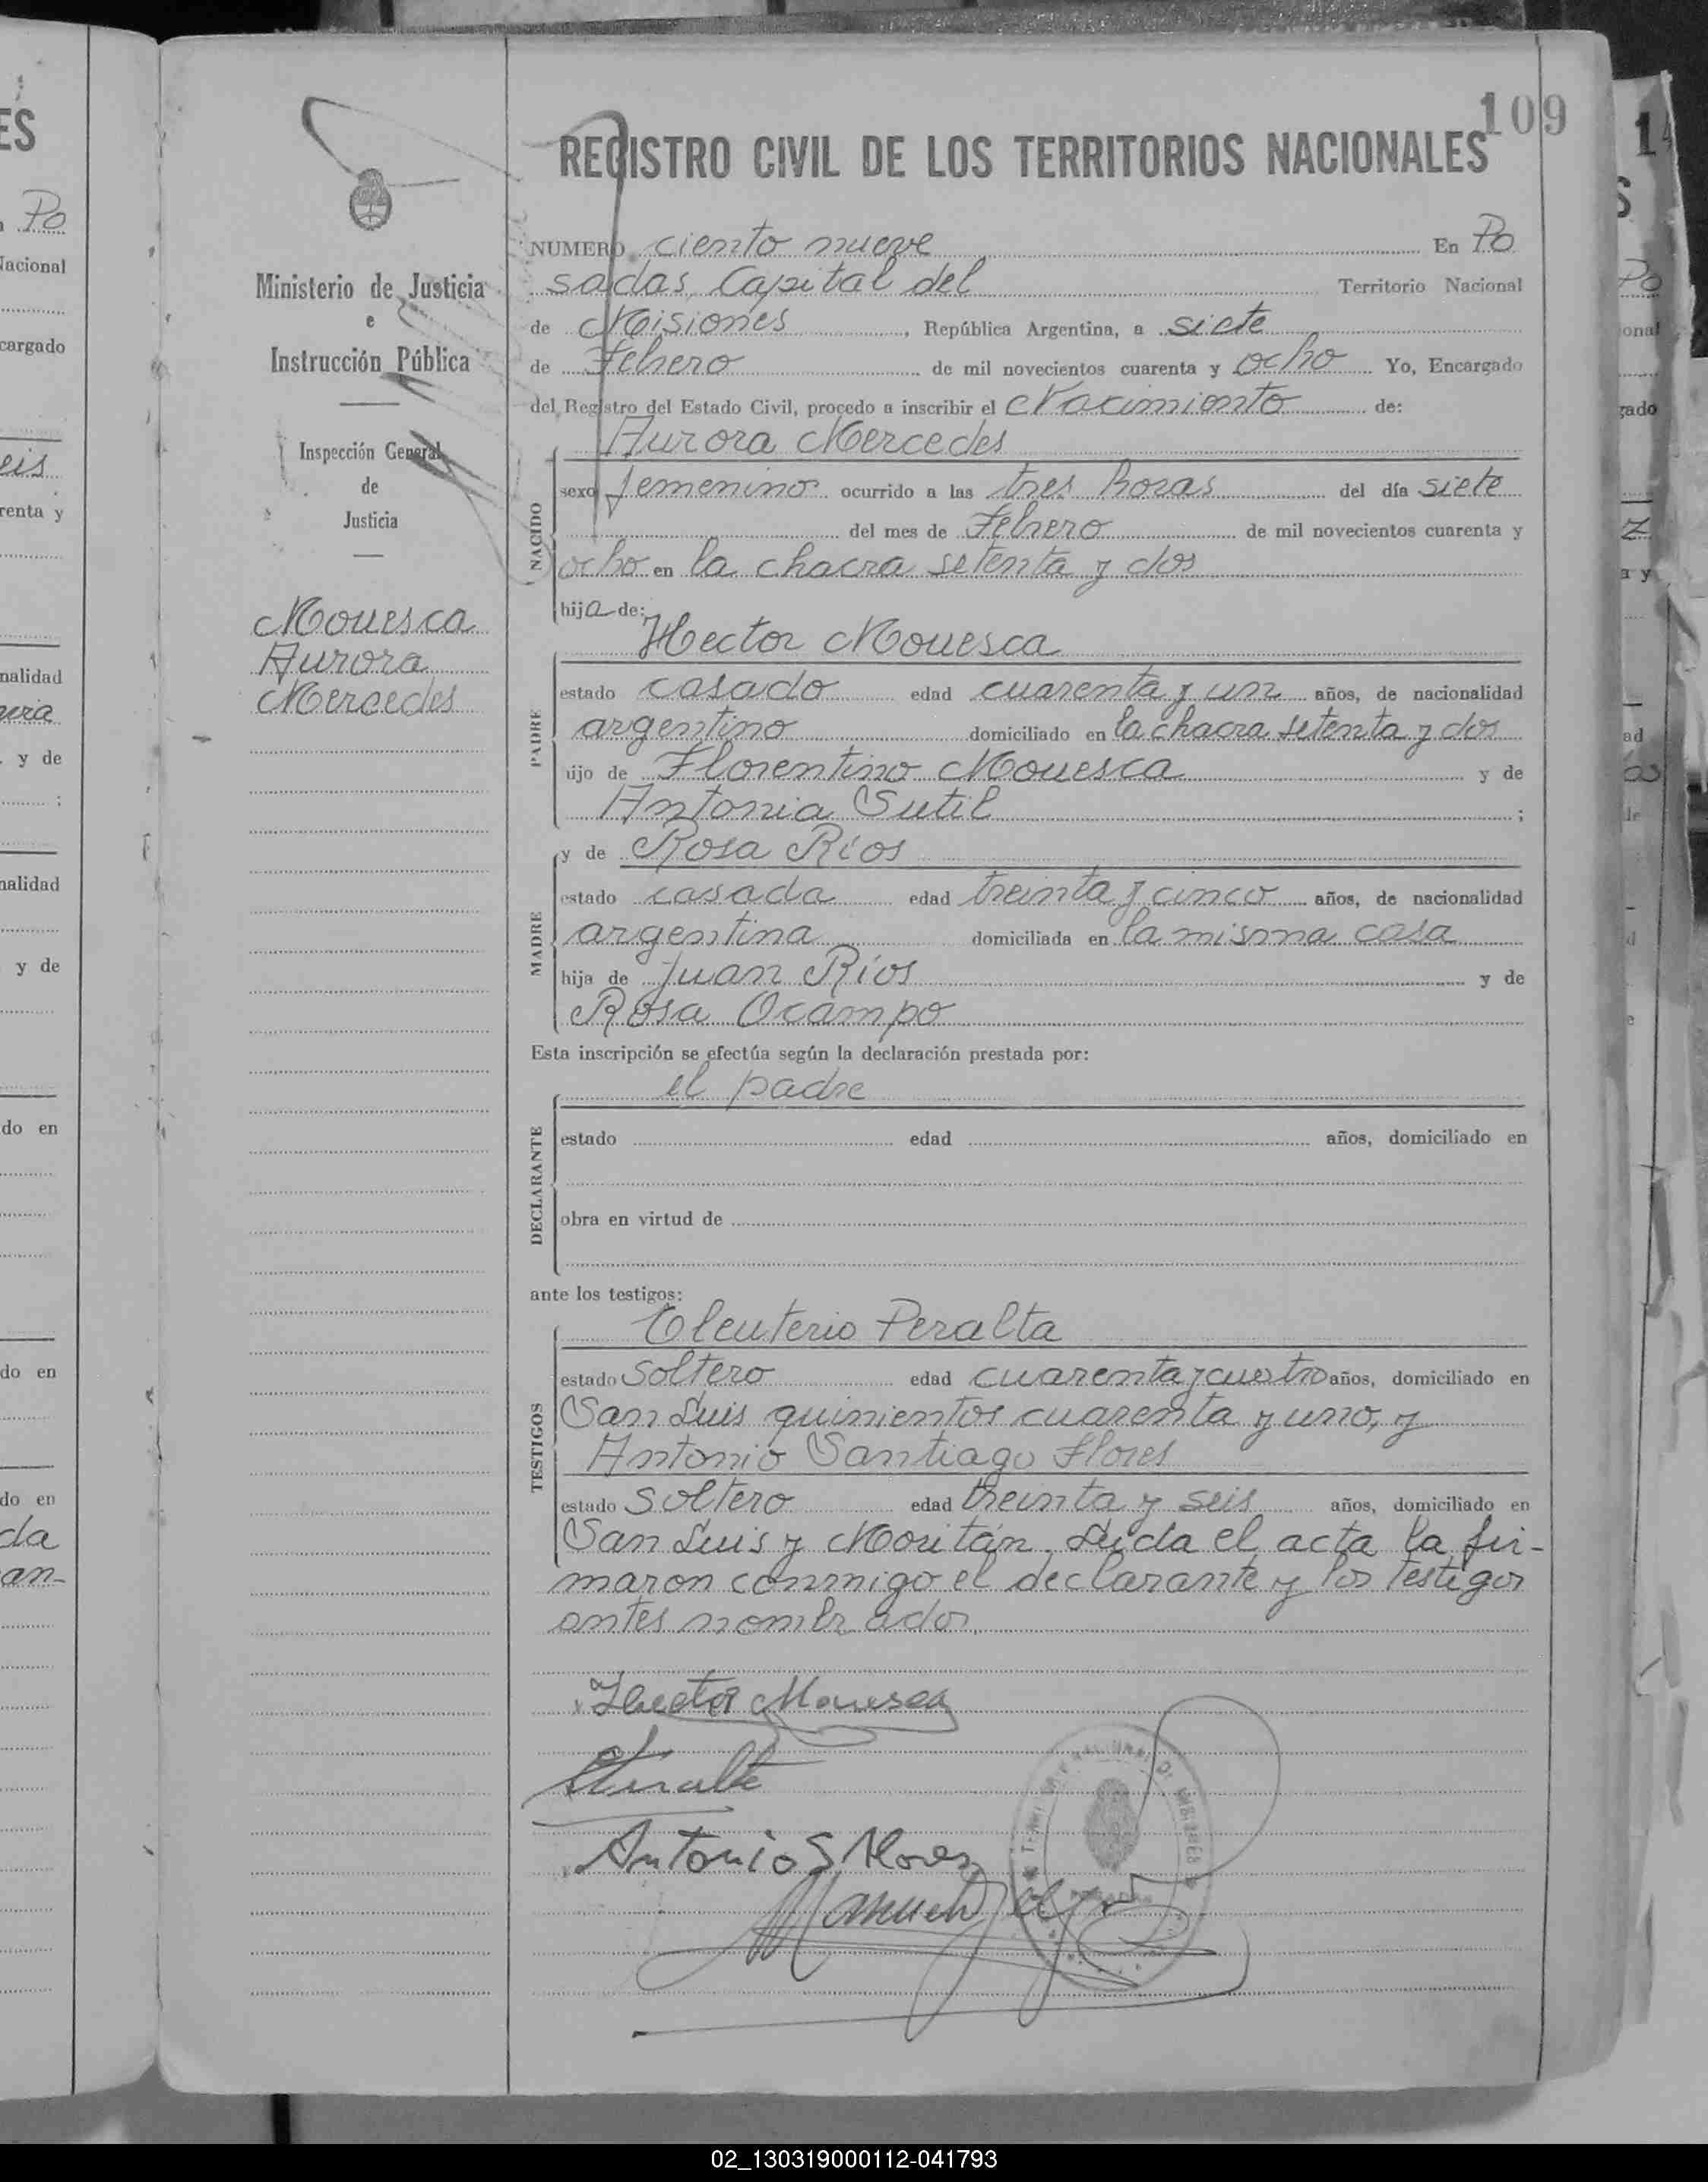 109
REGISTRO CIVIL DE LOS TERRITORIOS NACIONALES
Ministerio de Justicia
e
Instrucción Pública
Inspección General
de
Justicia
Mouesca
Aurora
Mercedes
NUMERO ciento nueve En Po
sadas, Capital del Territorio Nacional
de Misiones, República Argentina, a siete
de Febrero de mil novecientos cuarenta y ocho Yo, Encargado
del Registro del Estado Civil, procedo a inscribir el Nacimiento de:
Aurora Mercedes
NACIDO
sexo femenino ocurrido a las tres horas del día siete
del mes de Febrero de mil novecientos cuarenta y
ocho en la chacra setenta y dos
hija de:
Hector Mouesca
PADRE
estado casado edad cuarenta y un años, de nacionalidad
argentino domiciliado en la chacra setenta y dos
ijo de Florentino Mouesca y de
Antonia Sutil ;
y de Rosa Ríos
MADRE
estado casada edad treinta y cinco años, de nacionalidad
argentina domiciliada en la misma casa
hija de Juan Ríos y de
Rosa Ocampo
Esta inscripción se efectúa según la declaración prestada por:
el padre
DECLARANTE
estado edad años, domiciliado en
obra en virtud de
ante los testigos:
Eleuterio Peralta
TESTIGOS
estado soltero edad cuarenta y cuatro años, domiciliado en
San Luis quinientos cuarenta y uno, y
Antonio Santiago Flores
estado soltero edad treinta y seis años, domiciliado en
San Luis y Moritán. Leida el acta la fir-
maron conmigo el declarante y los testigos
antes nombrados.
Hector Mouesca
Antonio S Flores
Manuel
02_130319000112-041793